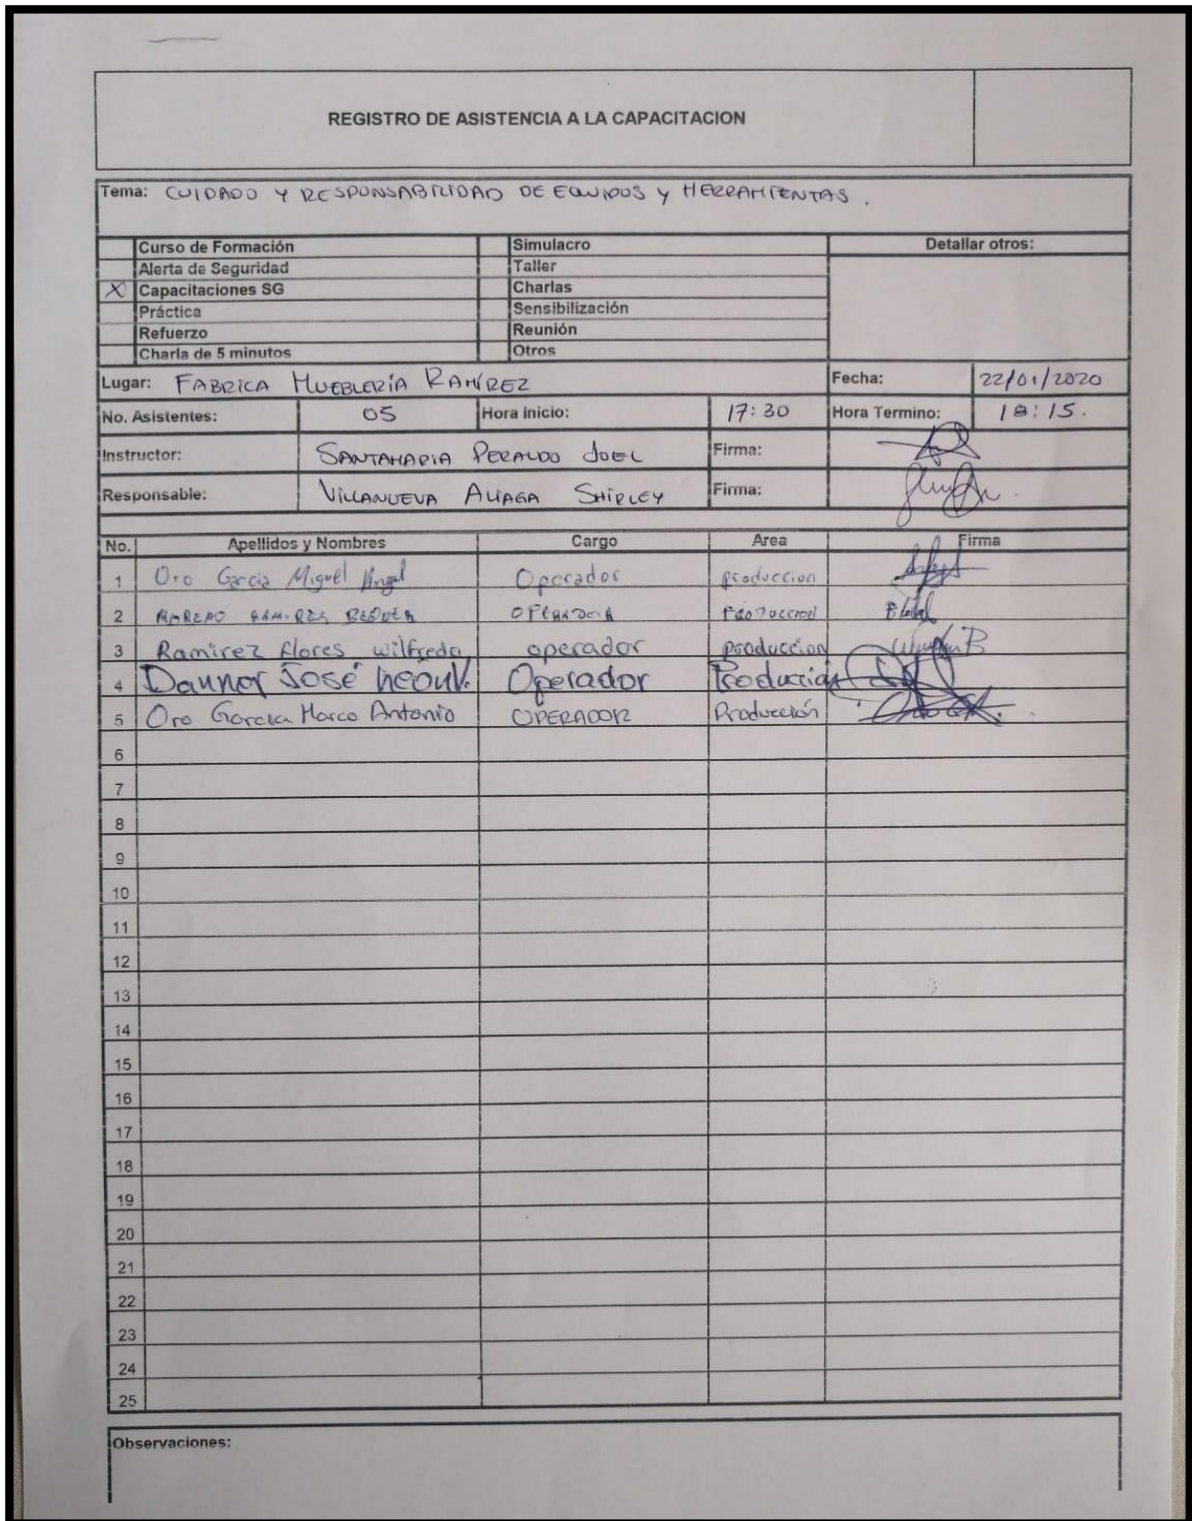 REGISTRO DE ASISTENCIA A LA CAPACITACION
Tema: CUIDADO Y RESPONSABILIDAD DE EQUIPOS Y HERRAMIENTAS.
Curso de Formación Simulacro Detallar otros:
Alerta de Seguridad Taller
X Capacitaciones SG Charlas
Práctica Sensibilización
Refuerzo Reunión
Charla de 5 minutos Otros
Lugar: FABRICA MUEBLERÍA RAMÍREZ Fecha: 22/01/2020
No. Asistentes: 05 Hora Inicio: 17:30 Hora Termino: 18:15.
Instructor: SANTAMARIA JOEL Firma:
Responsable: VILLANUEVA ALIAGA SHIRLEY Firma:
No. Apellidos y Nombres Cargo Area Firma
1 Oro Garcia Miguel Angel Operador produccion
2
3 Ramirez flores wilfredo operador produccion
4 José Operador Producción
5 Oro Garcia Marco Antonio OPERADOR Producción
6
7
8
9
10
11
12
13
14
15
16
17
18
19
20
21
22
23
24
25
Observaciones: